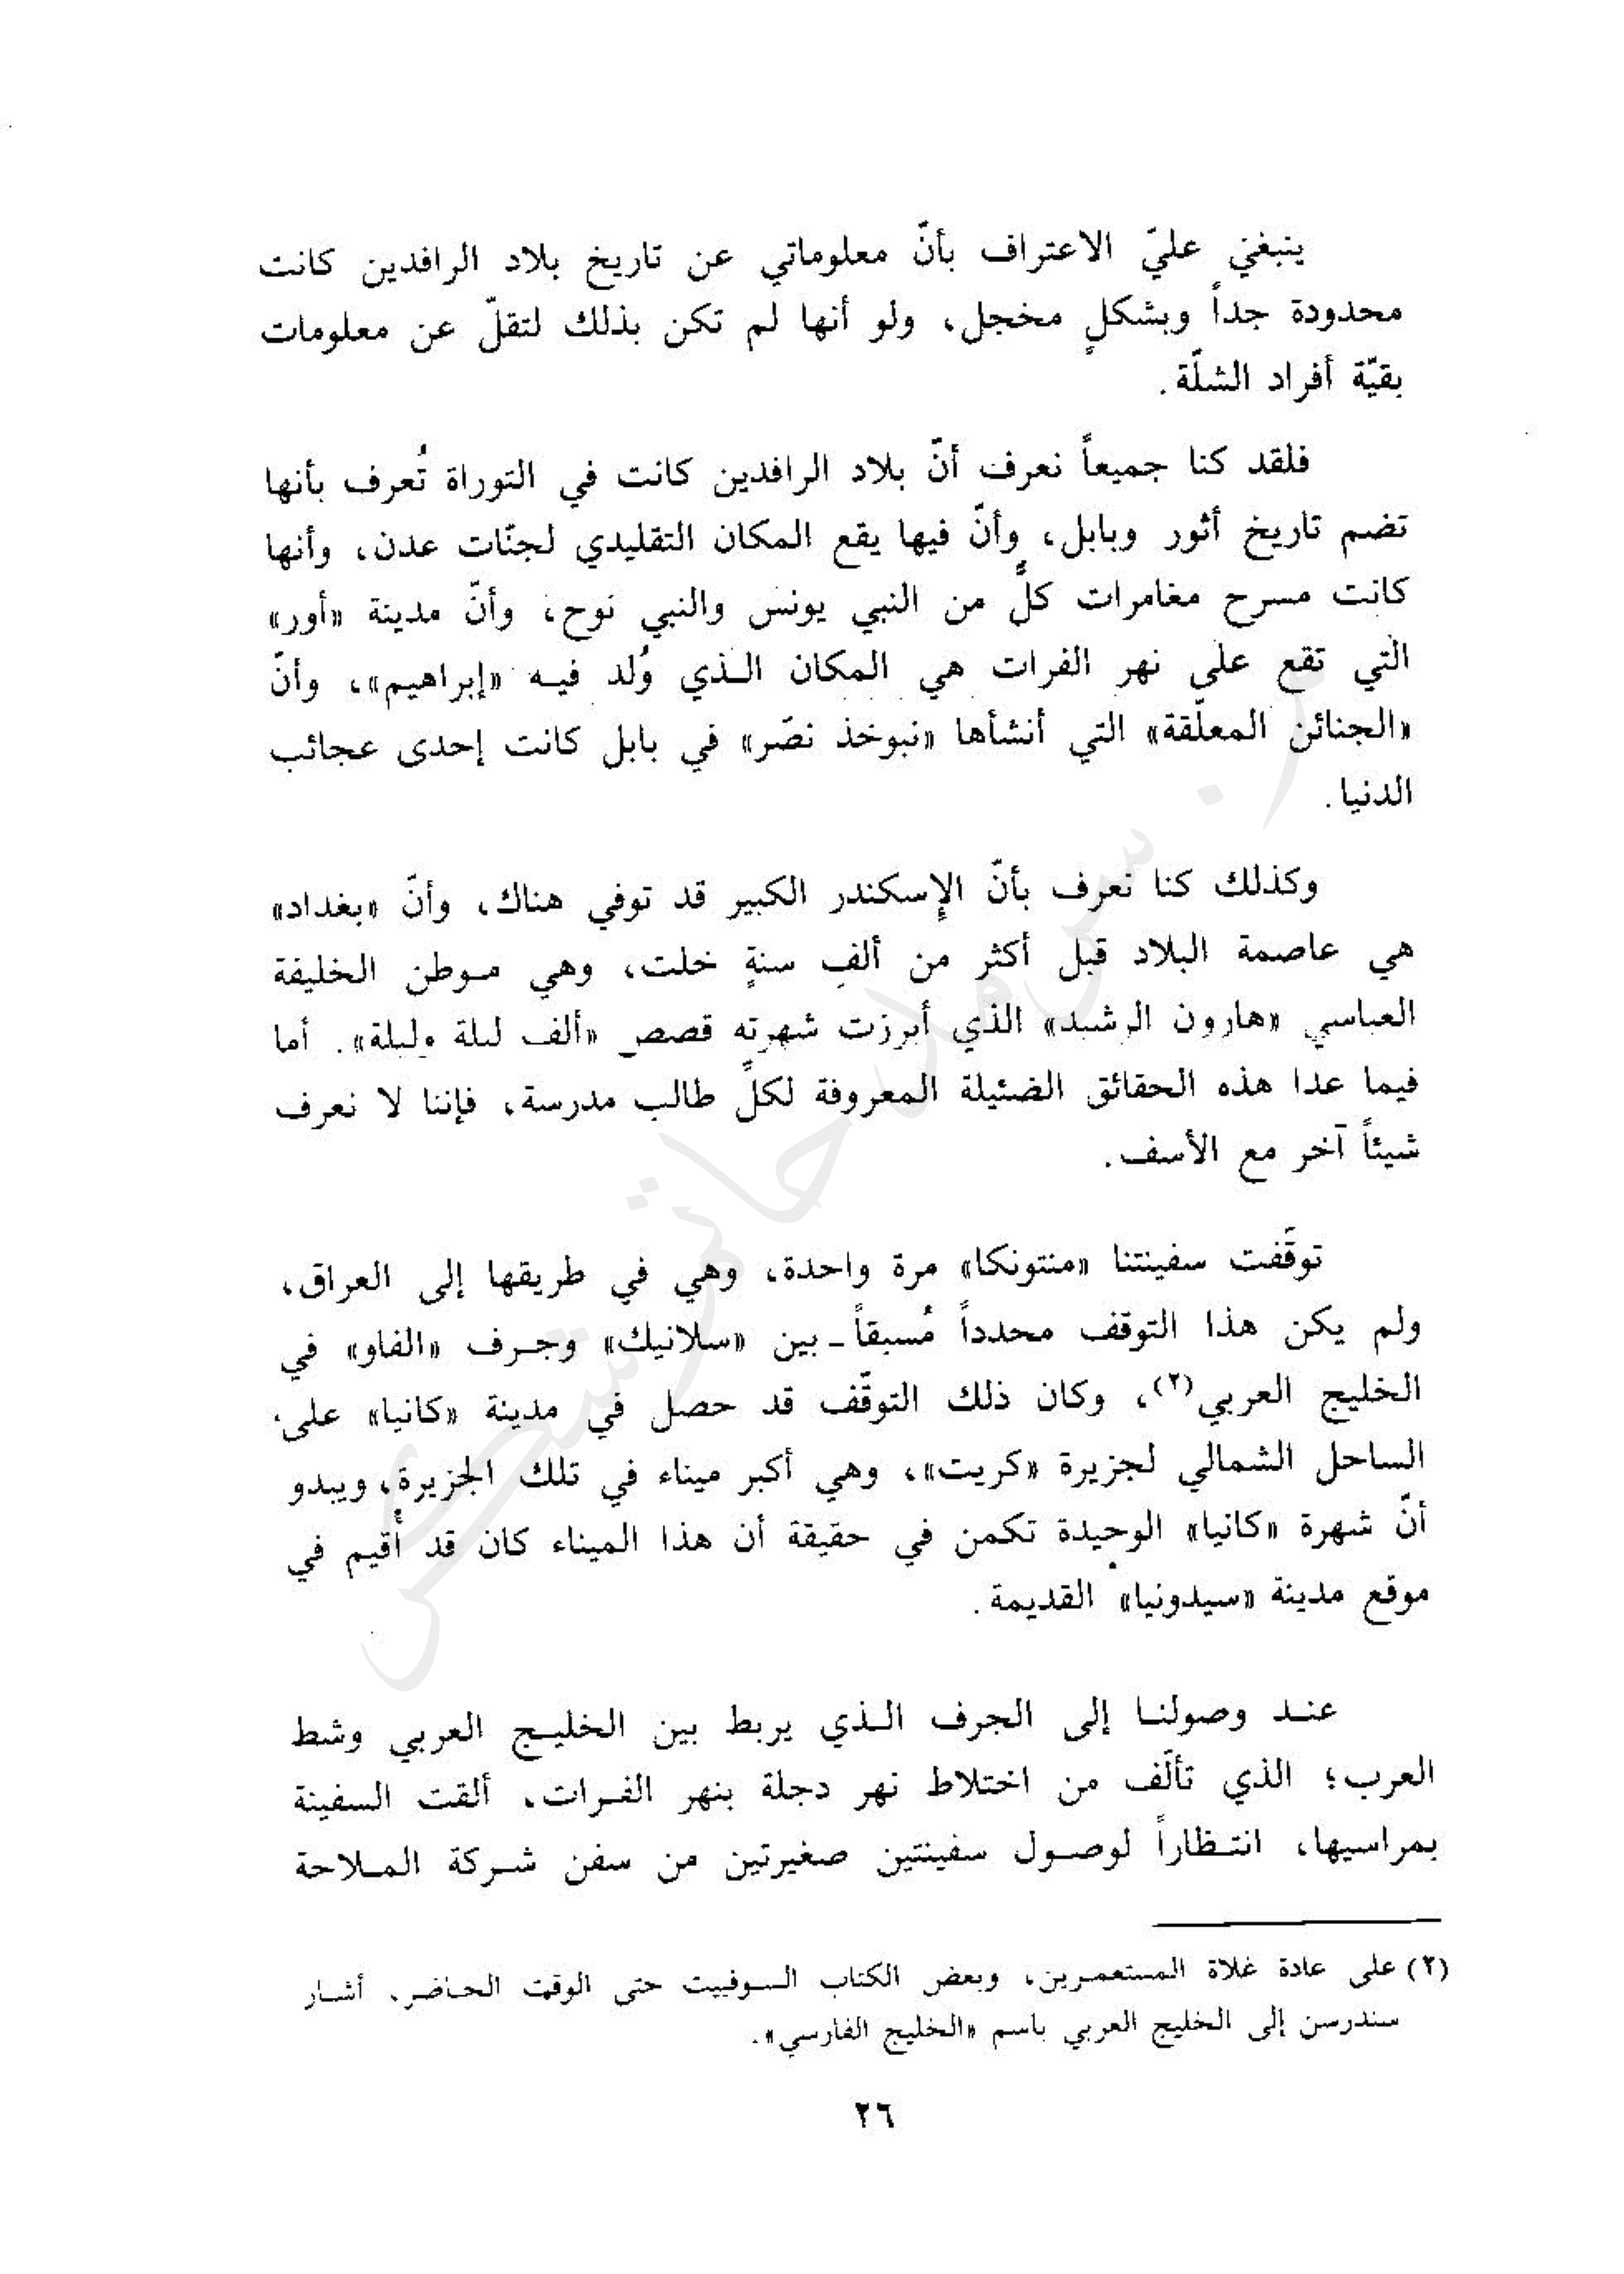 ينبغي عليّ الاعتراف بأنّ معلوماتي عن تاريخ بلاد الرافدين كانت
محدودة جداً وبشكلٍ مخجل، ولو أنها لم تكن بذلك لتقلّ عن معلومات
بقيّة أفراد الشلّة.
فلقد كنا جميعاً نعرف أنّ بلاد الرافدين كانت في التوراة تُعرف بأنها
تضم تاريخ أثور وبابل، وأنّ فيها يقع المكان التقليدي لجنّات عدن، وأنها
كانت مسرح مغامرات كلٍّ من النبي يونس والنبي نوح، وأنّ مدينة «أور»
التي تقع على نهر الفرات هي المكان الـذي وُلد فيـه «إبراهيم»، وأنّ
«الجنائن المعلّقة» التي أنشأها «نبوخذ نصّر» في بابل كانت إحدى عجائب
الدنيا.
وكذلك كنا نعرف بأنّ الإسكندر الكبير قد توفي هناك، وأنّ «بغداد»
هي عاصمة البلاد قبل أكثر من ألفِ سنةٍ خلت، وهي مـوطن الخليفة
العباسي «هارون الرشيد» الذي أبرزت شهرته قصص «ألف ليلة وليلة». أما
فيما عدا هذه الحقائق الضئيلة المعروفة لكلِّ طالب مدرسة، فإننا لا نعرف
شيئاً آخر مع الأسف.
توقّفت سفينتنا «منتونكا» مرة واحدة، وهي في طريقها إلى العراق،
ولم يكن هذا التوقف محدداً مُسبقاً ـ بين «سلانيك» وجـرف «الفاو» في
الخليج العربي(٢)، وكان ذلك التوقّف قد حصل في مدينة «كانيا» على
الساحل الشمالي لجزيرة «كريت»، وهي أكبر ميناء في تلك الجزيرة، ويبدو
أنّ شهرة «كانيا» الوحيدة تكمن في حقيقة أن هذا الميناء كان قد أُقيم في
موقع مدينة «سيدونيا» القديمة.
عنـد وصولنـا إلى الجرف الـذي يربط بين الخليـج العربي وشط
العرب؛ الذي تألّف من اختلاط نهر دجلة بنهر الفـرات، ألقت السفينة
بمراسيها، انتـظاراً لوصـول سفينتين صغيرتين من سفن شـركة المـلاحة
(٢) على عادة غلاة المستعمـرين، وبعض الكتاب السـوفييت حتى الوقت الحـاضر، أشـار
سندرسن إلى الخليج العربي باسم «الخليج الفارسي».
٢٦